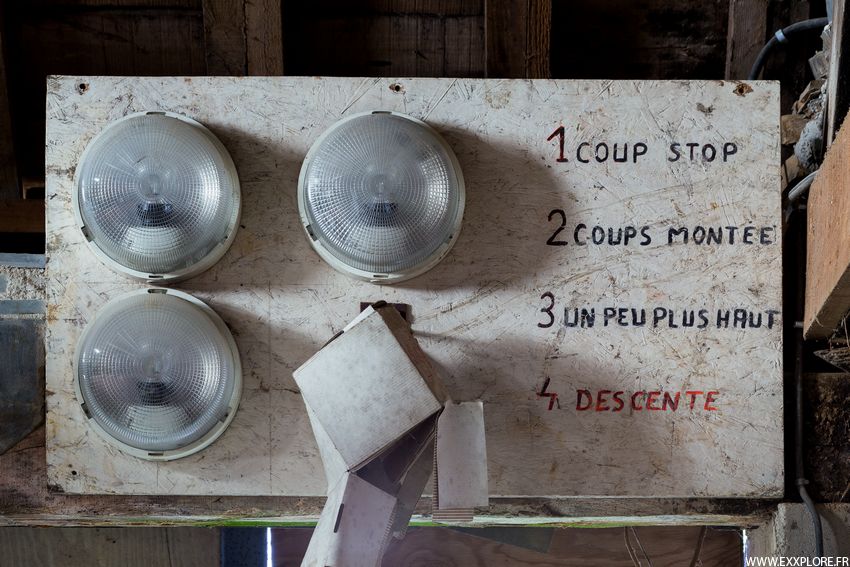 1 COUP STOP
2 COUPS MONTEE
3 UN PEU PLUS HAUT
4 DESCENTE
WWW.EXXPLORE.FR